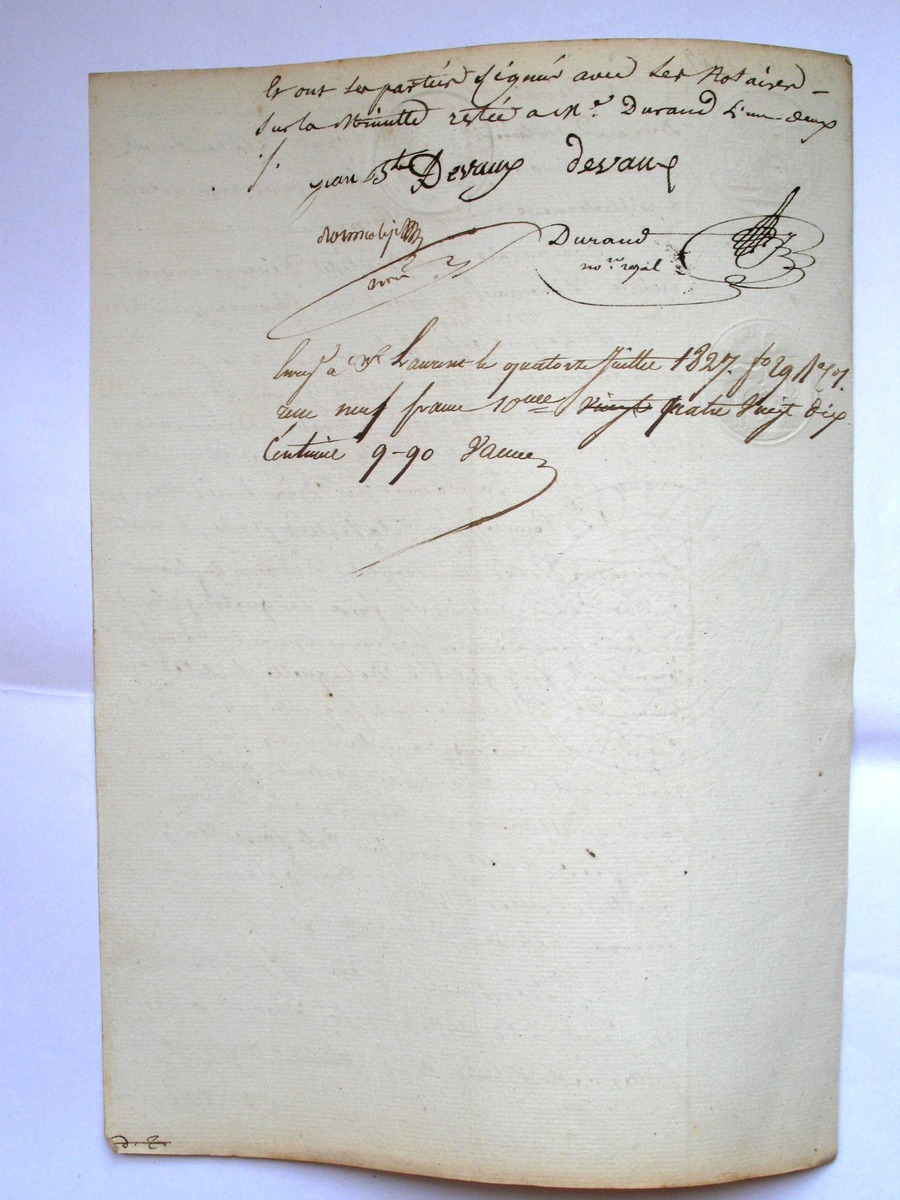 Et ont les parties signée avec les Notaires –
sur la Minutte restée a Me. Durand L'un deux
/.
jean Bte Devaux devaux
Durand
nore. royal
Enregé a St Laurent le quatorze Juillet 1827. fo 29
neuf francs 10eme vingt quatre Vingt dix
Centimes 9-90
d. t.